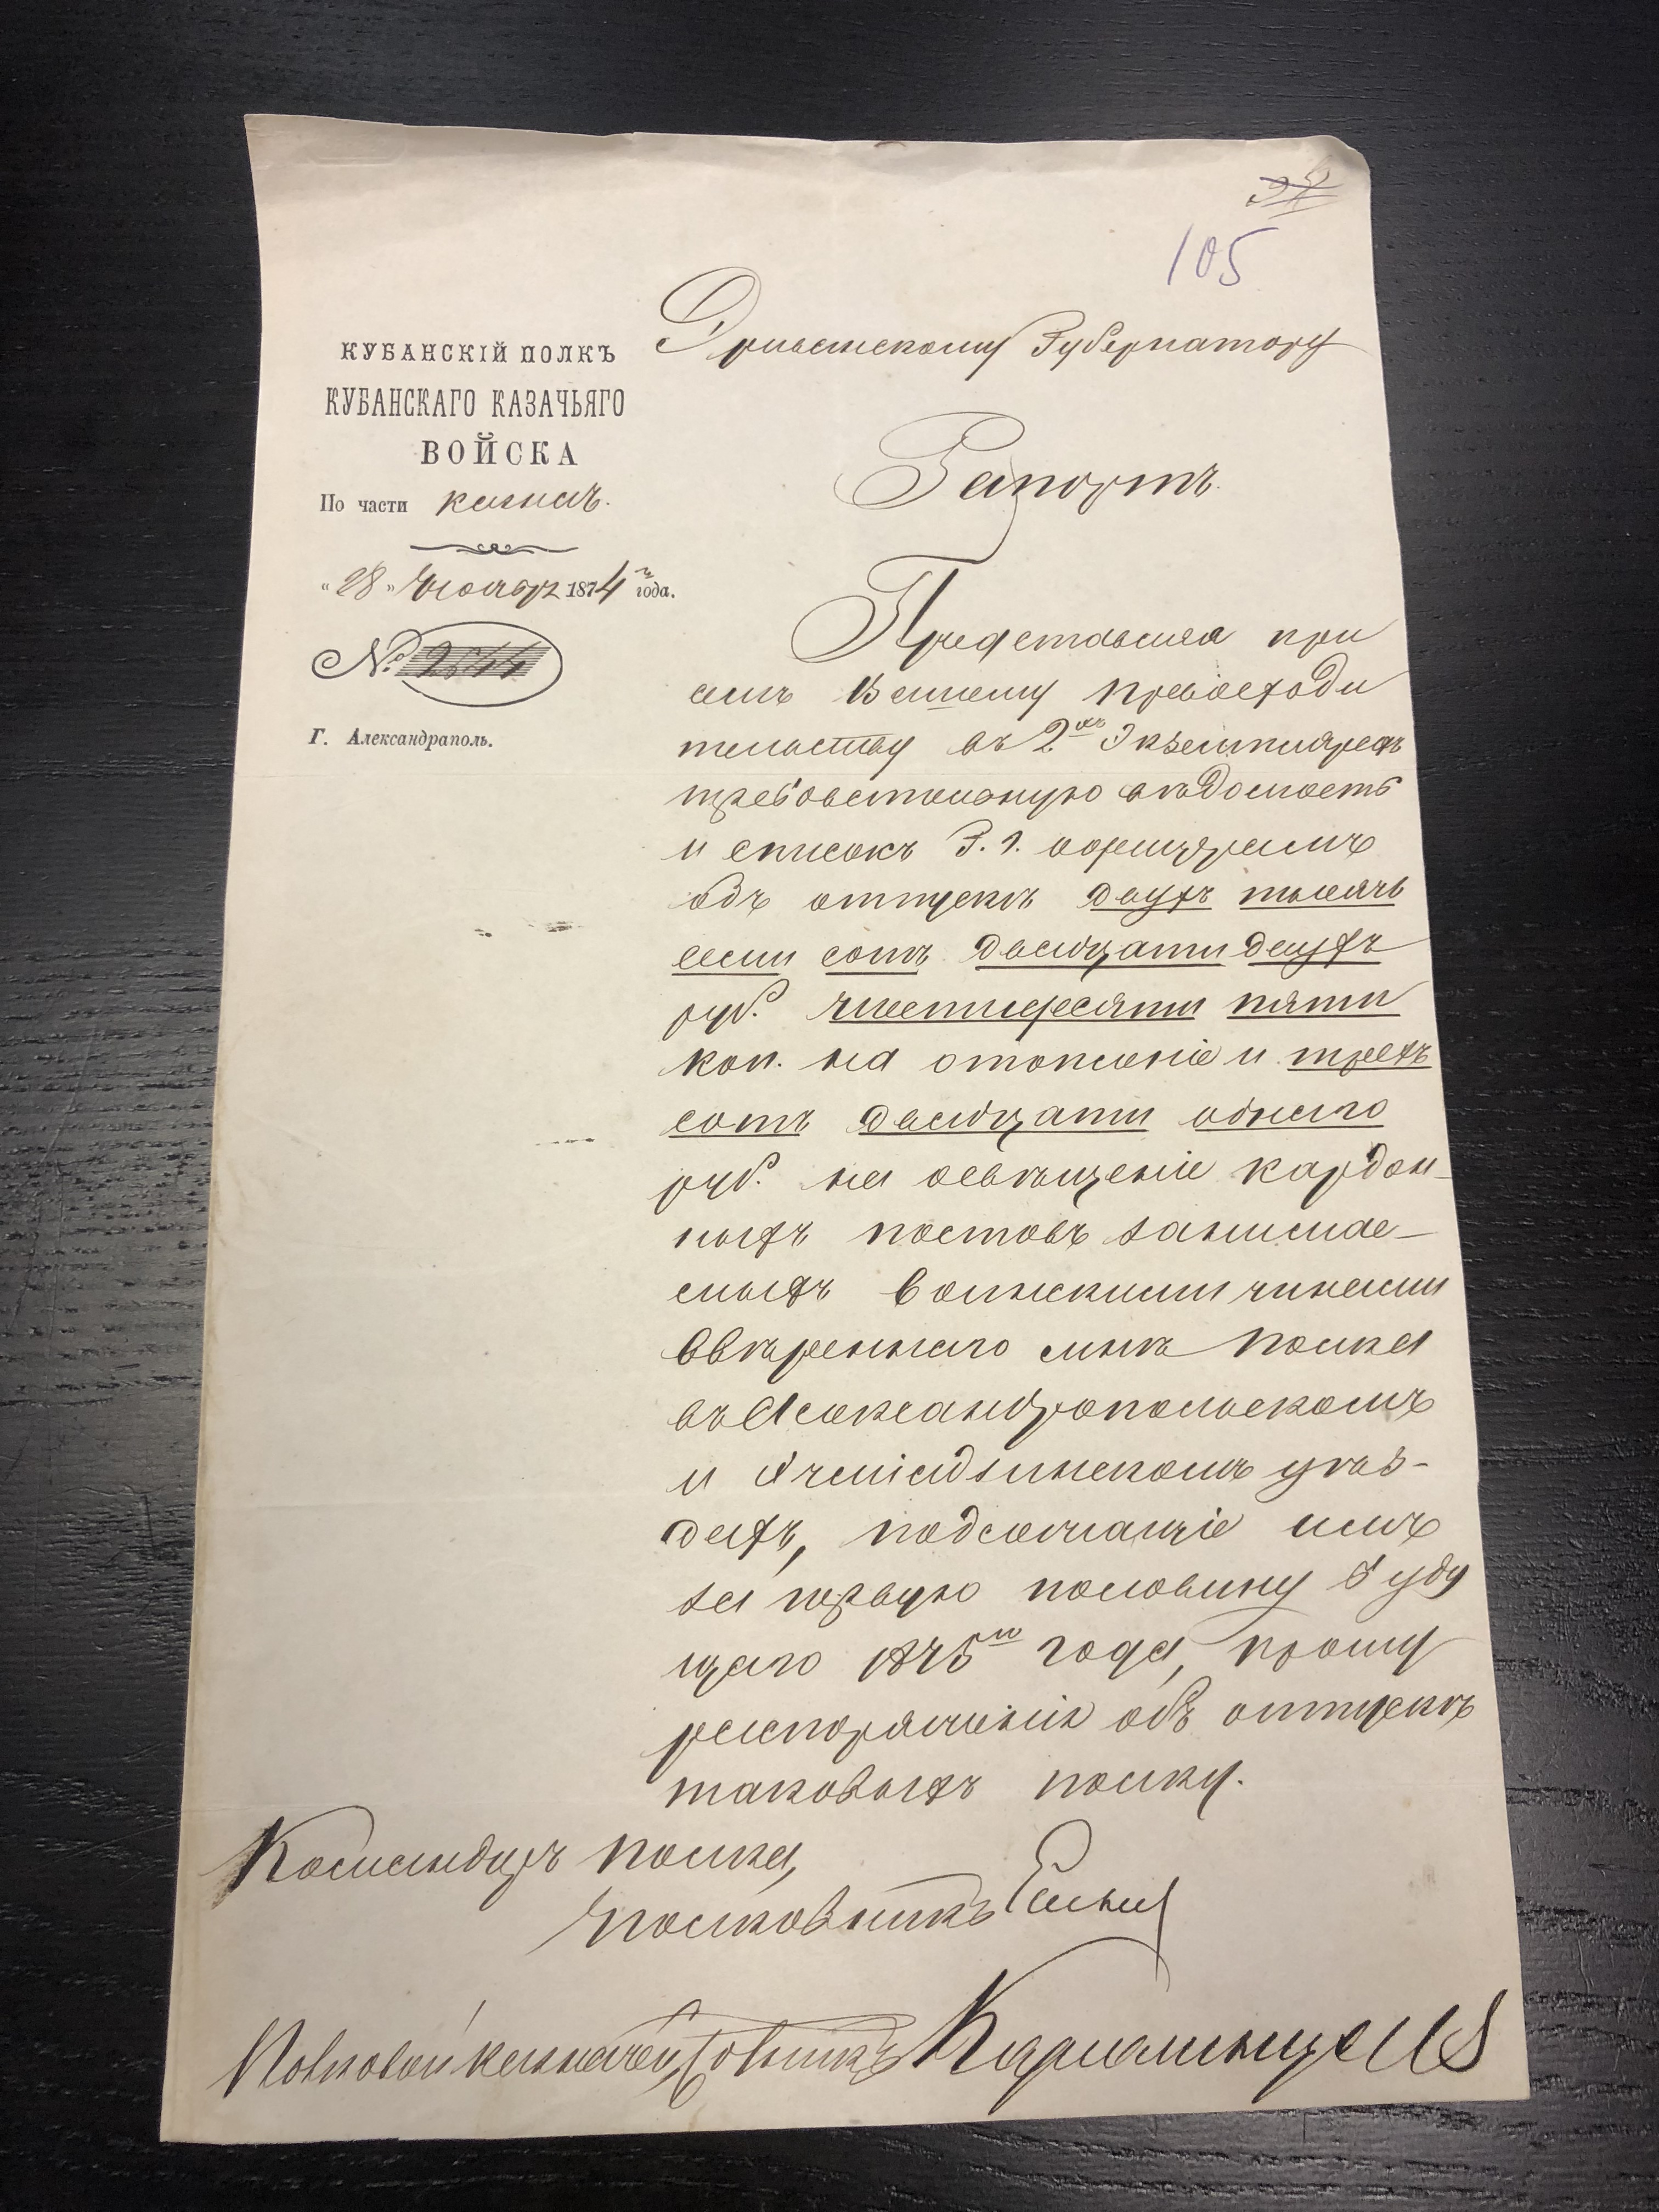 105
КУБАНСКІЙ ПОЛКЪ
КУБАНСКАГО КАЗАЧЬЯГО
ВОЙСКА
По части казнач.
"28" Ноября 1874 года.
№
Г. Александраполь.
Эриванскому Губернатору
Рапортъ.
Представляя при
семъ Вашему Превосходи
тельству въ 2хъ Экземплярахъ
требовательную вѣдомость
и списокъ З. 1. ворищерамъ
объ отпускѣ двухъ тысячъ
семи сотъ двадцати двухъ
руб. шестидесяти пяти
коп. на отопленіе и трехъ
сотъ двадцати одного
руб. на освѣщеніе кардон-
ныхъ постовъ занимае-
мыхъ воинскими чинами
ввѣреннаго мнѣ полка
въ Александропольскомъ
и Эчміадзинскомъ уѣз-
дахъ, подлежащіе имъ
за первую половину буду
щаго 1875го года, прошу
распоряженія объ отпускѣ
таковыхъ полку.
Командиръ полка,
Полковникъ
Полковой казначей, Сотникъ